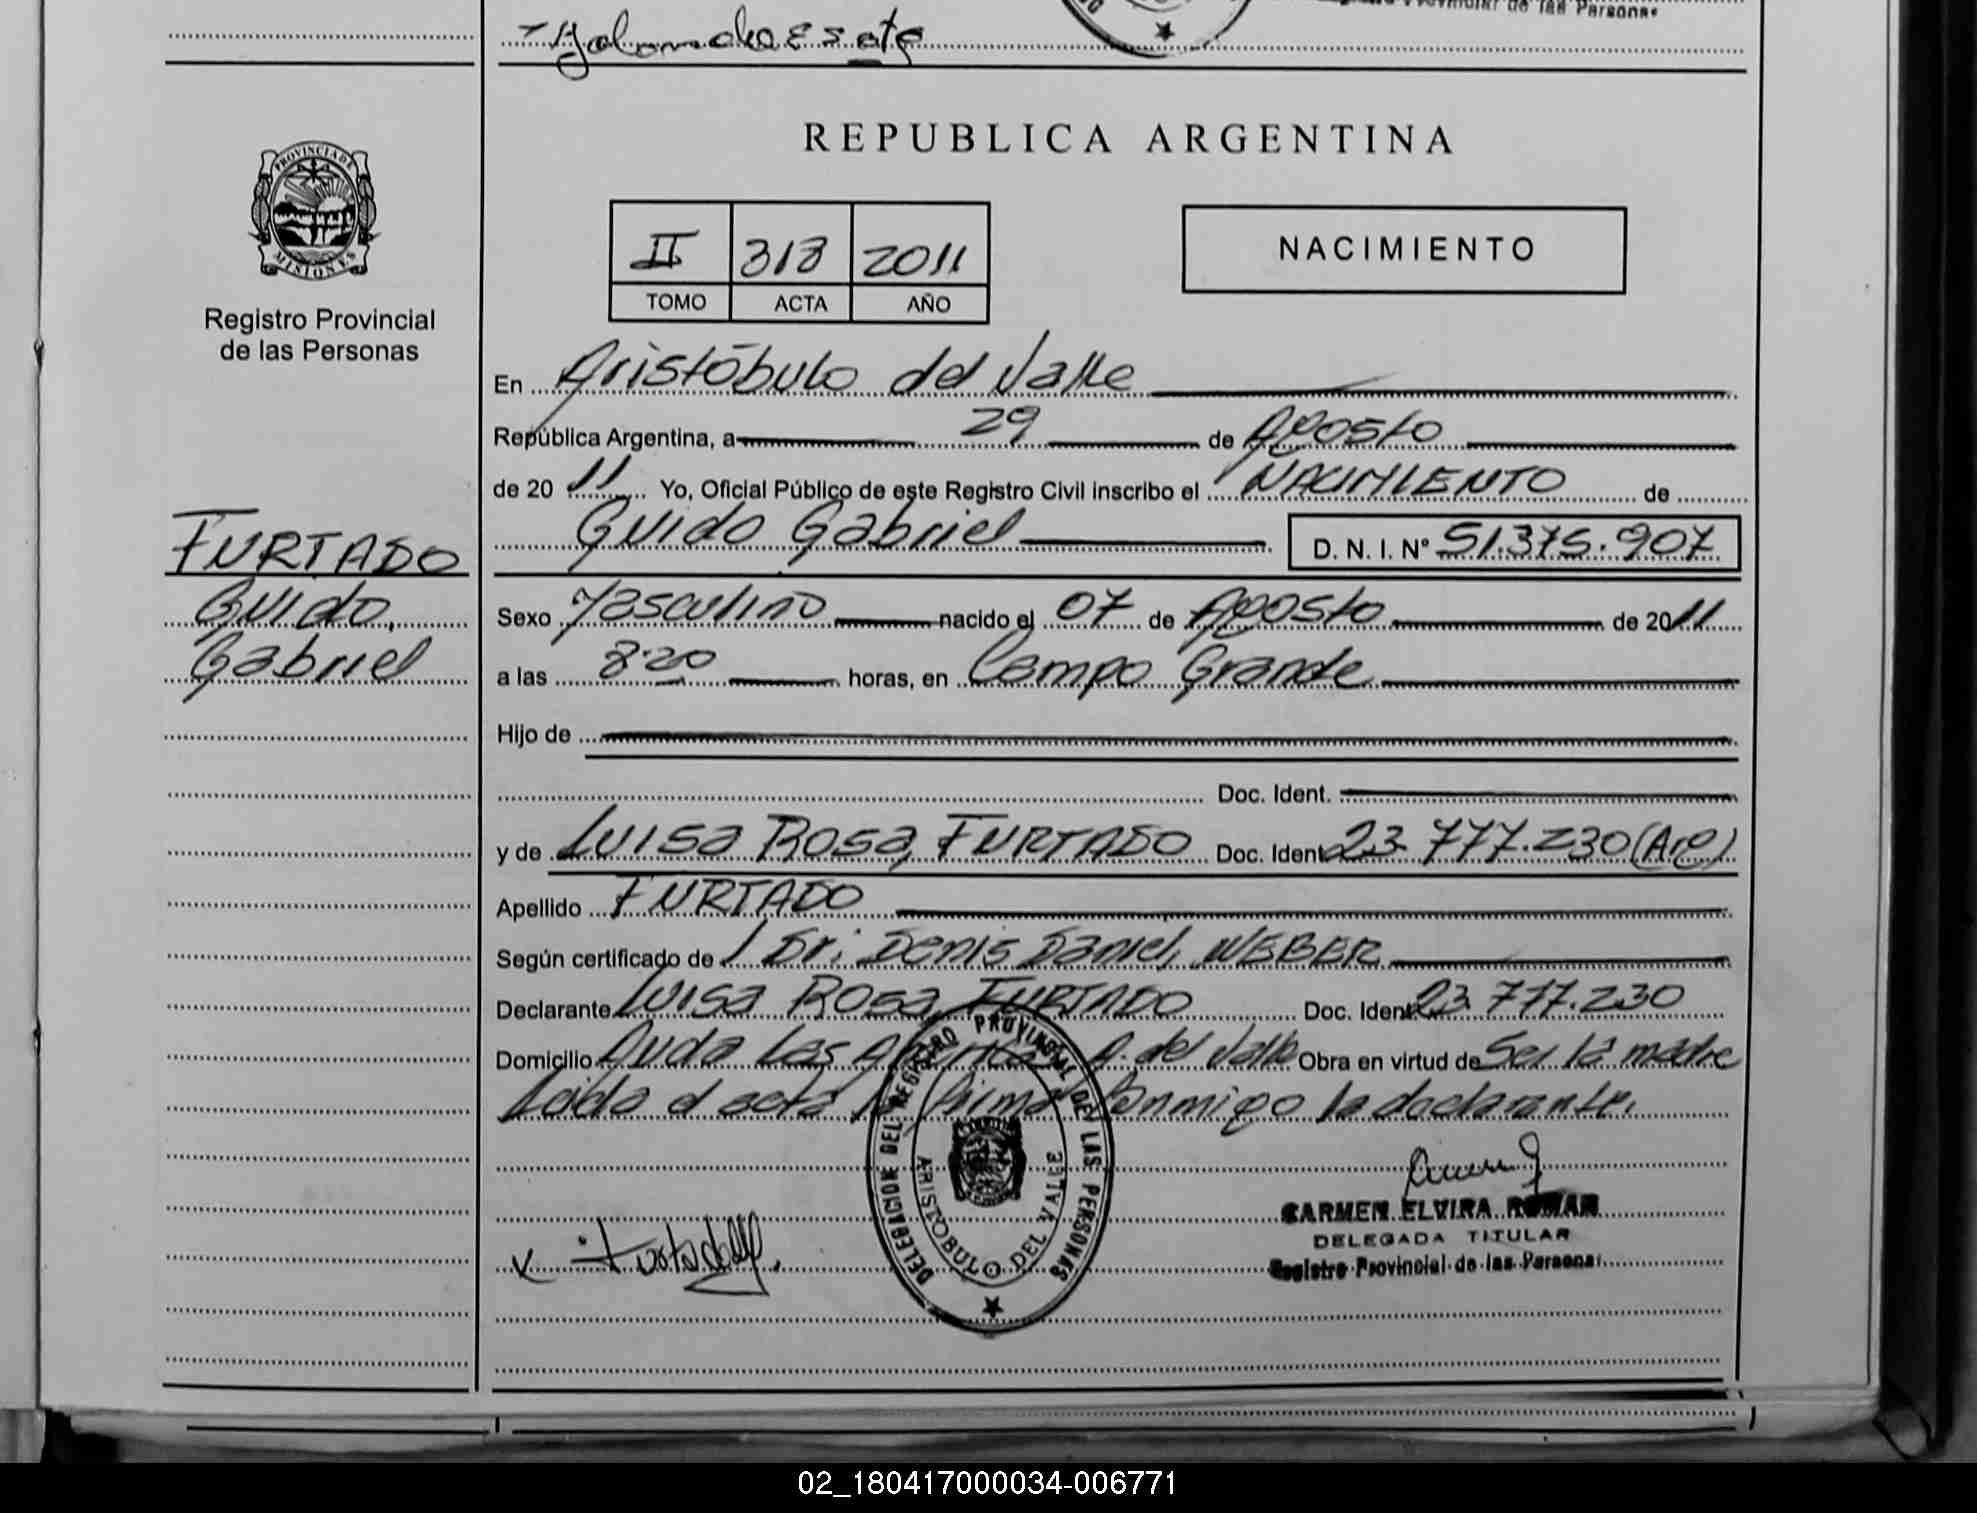 Provincial de las Personas
REPUBLICA ARGENTINA
PROVINCIA DE
MISIONES
Registro Provincial
de las Personas
II 313 2011
TOMO ACTA AÑO
NACIMIENTO
En Aristóbulo del Valle
República Argentina, a 29 de Agosto
de 20 11 Yo, Oficial Público de este Registro Civil inscribo el NACIMIENTO de
Guido Gabriel D. N. I. Nº 51.375.907
FURTADO
Guido,
Gabriel
Sexo Masculino nacido el 07 de Agosto de 2011
a las 8:20 horas, en Campo Grande
Hijo de
Doc. Ident.
y de Luisa Rosa, FURTADO Doc. Ident 23.777.230 (Arg)
Apellido FURTADO
Según certificado de Dr. Denis Daniel, WEBER
Declarante Luisa Rosa, FURTADO Doc. Ident 23.777.230
Domicilio Avda Las A. del Valle Obra en virtud de Ser la madre
Leida el acta la firma conmigo la declarante.
DELEGACION DEL REGISTRO PROVINCIAL DE LAS PERSONAS
ARISTOBULO DEL VALLE
CARMEN ELVIRA ROMAN
DELEGADA TITULAR
Registro Provincial de las Personas
x Furtado
02_180417000034-006771